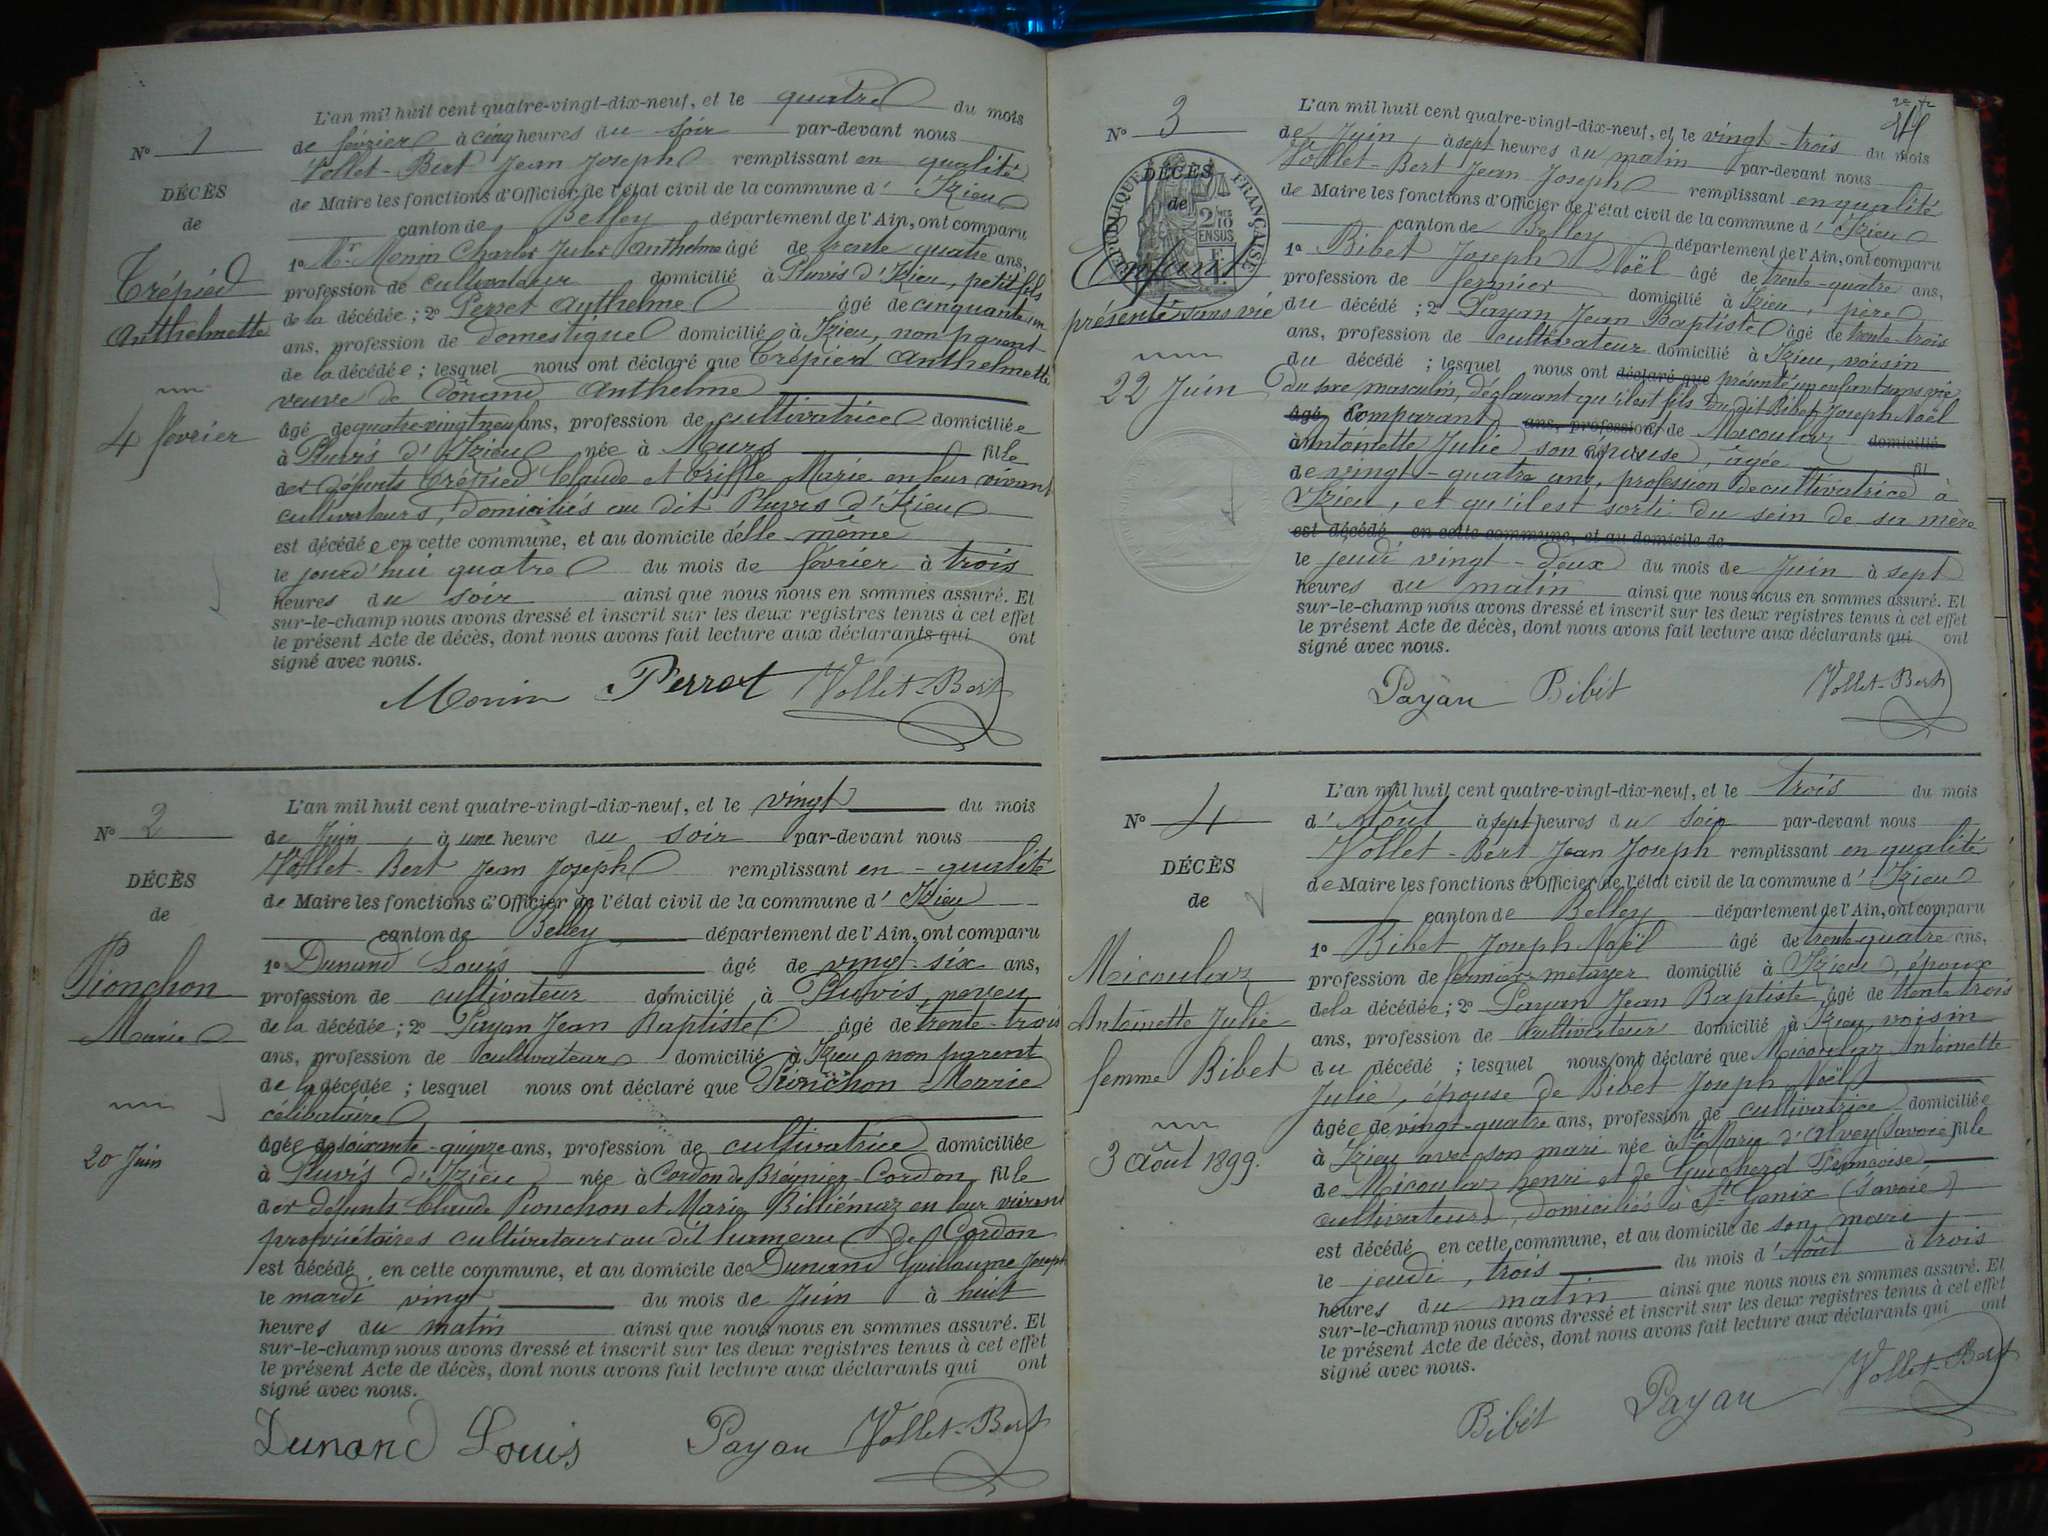 L'an mil huit cent quatre-vingt-dix-neuf, et le quatre du mois
de février à cinq heures du soir par-devant nous
Vollet-Bert Jean Joseph remplissant en qualité
de Maire les fonctions d'Officier de l'état civil de la commune d'Izieu
canton de Belley, département de l'Ain, ont comparu
1º Mr. Monin Charles Jules Anthelme âgé de trente quatre ans,
profession de cultivateur domicilié à Pluvis d'Izieu, petit fils
de la décédée; 2º Perret Anthelme âgé de cinquante un
ans, profession de domestique domicilié à Izieu, non parent
de la décédée; lesquel nous ont déclaré que Trépied Anthelmette
veuve de Conand Anthelme
âgé de quatre vingt neuf ans, profession de cultivatrice domiciliée
à Pluvis d'Izieu née à Murs fille
des défunts Trépied Claude et Triffle Marie en leur vivant
cultivateurs, domiciliés au dit Pluvis d'Izieu
est décédée en cette commune, et au domicile d'elle même
le jourd'hui quatre du mois de février à trois
heures du soir ainsi que nous nous en sommes assuré. Et
sur-le-champ nous avons dressé et inscrit sur les deux registres tenus à cet effet
le présent Acte de décès, dont nous avons fait lecture aux déclarants qui ont
signé avec nous.
Monin Perret Vollet-Bert
Nº 1
DÉCÈS
de
Trépied
Anthelmette
4 février
L'an mil huit cent quatre-vingt-dix-neuf, et le vingt du mois
de Juin à une heure du soir par-devant nous
Vollet-Bert Jean Joseph remplissant en qualité
de Maire les fonctions d'Officier de l'état civil de la commune d'Izieu
canton de Belley département de l'Ain, ont comparu
1º Dunand Louis âgé de vingt-six ans,
profession de cultivateur domicilié à Pluvis, neveu
de la décédée; 2º Payan Jean Baptiste âgé de trente-trois
ans, profession de cultivateur domicilié à Izieu, non parent
de la décédée; lesquel nous ont déclaré que Pionchon Marie
célibataire
âgée de soixante-quinze ans, profession de cultivatrice domiciliée
à Pluvis d'Izieu née à Cordon de Brégnier-Cordon, fille
des défunts Claude Pionchon et Marie Billiémaz en leur vivant
propriétaires cultivateurs au dit hameau de Cordon
est décédé en cette commune, et au domicile de Dunand Guillaume Joseph
le mardi vingt du mois de Juin à huit
heures du matin ainsi que nous nous en sommes assuré. Et
sur-le-champ nous avons dressé et inscrit sur les deux registres tenus à cet effet
le présent Acte de décès, dont nous avons fait lecture aux déclarants qui ont
signé avec nous.
Dunand Louis Payan Vollet-Bert
Nº 2
DÉCÈS
de
Pionchon
Marie
20 Juin
L'an mil huit cent quatre-vingt-dix-neuf, et le vingt-trois du mois
de Juin, à sept heures du matin par-devant nous
Vollet-Bert Jean Joseph remplissant en qualité
de Maire les fonctions d'Officier de l'état civil de la commune d'Izieu
canton de Belley département de l'Ain, ont comparu
1º Bibet Joseph Noël âgé de trente-quatre ans,
profession de fermier domicilié à Izieu, père
du décédé; 2º Payan Jean Baptiste âgé de trente-trois
ans, profession de cultivateur domicilié à Izieu, voisin
du décédé; lesquel nous ont déclaré que présenté un enfant sans vie
du sexe masculin, déclarant qu'il est fils du dit Bibet Joseph Noël
âgé comparant ans, profession et de Micoulaz domicilié
à Antoinette Julie son épouse, âgée fil
de vingt-quatre ans, profession de cultivatrice à
Izieu, et qu'il est sorti du sein de sa mère
est décédé en cette commune, et au domicile de
le jeudi vingt-deux du mois de Juin à sept
heures du matin ainsi que nous nous en sommes assuré. Et
sur-le-champ nous avons dressé et inscrit sur les deux registres tenus à cet effet
le présent Acte de décès, dont nous avons fait lecture aux déclarants qui ont
signé avec nous.
Payan Bibet Vollet-Bert
Nº 3
DÉCÈS
de
RÉPUBLIQUE FRANÇAISE
2/10 EN SUS
Enfant
présenté sans vie
22 Juin
L'an mil huit cent quatre-vingt-dix-neuf, et le trois du mois
d'Août à sept heures du soir par-devant nous
Vollet-Bert Jean Joseph remplissant en qualité
de Maire les fonctions d'Officier de l'état civil de la commune d'Izieu
canton de Belley département de l'Ain, ont comparu
1º Bibet Joseph Noël âgé de trente-quatre ans,
profession de fermier métayer domicilié à Izieu, époux
de la décédée; 2º Payan Jean Baptiste âgé de trente trois
ans, profession de cultivateur domicilié à Izieu, voisin
du décédé; lesquel nous ont déclaré que Micoulaz Antoinette
Julie, épouse de Bibet Joseph Noël
âgée de vingt-quatre ans, profession de cultivatrice domiciliée
à Izieu avec son mari née à Ste Marie d'Alvey (Savoie) fille
de Micoulaz henri et de Guicherd Françoise,
cultivateurs, domiciliés à St Genix (Savoie)
est décédé en cette commune, et au domicile de son mari,
le jeudi, trois du mois d'Août à trois
heures du matin ainsi que nous nous en sommes assuré. Et
sur-le-champ nous avons dressé et inscrit sur les deux registres tenus à cet effet
le présent Acte de décès, dont nous avons fait lecture aux déclarants qui ont
signé avec nous.
Bibet Payan Vollet-Bert
Nº 4
DÉCÈS
de
Micoulaz
Antoinette Julie
femme Bibet
3 Août 1899.